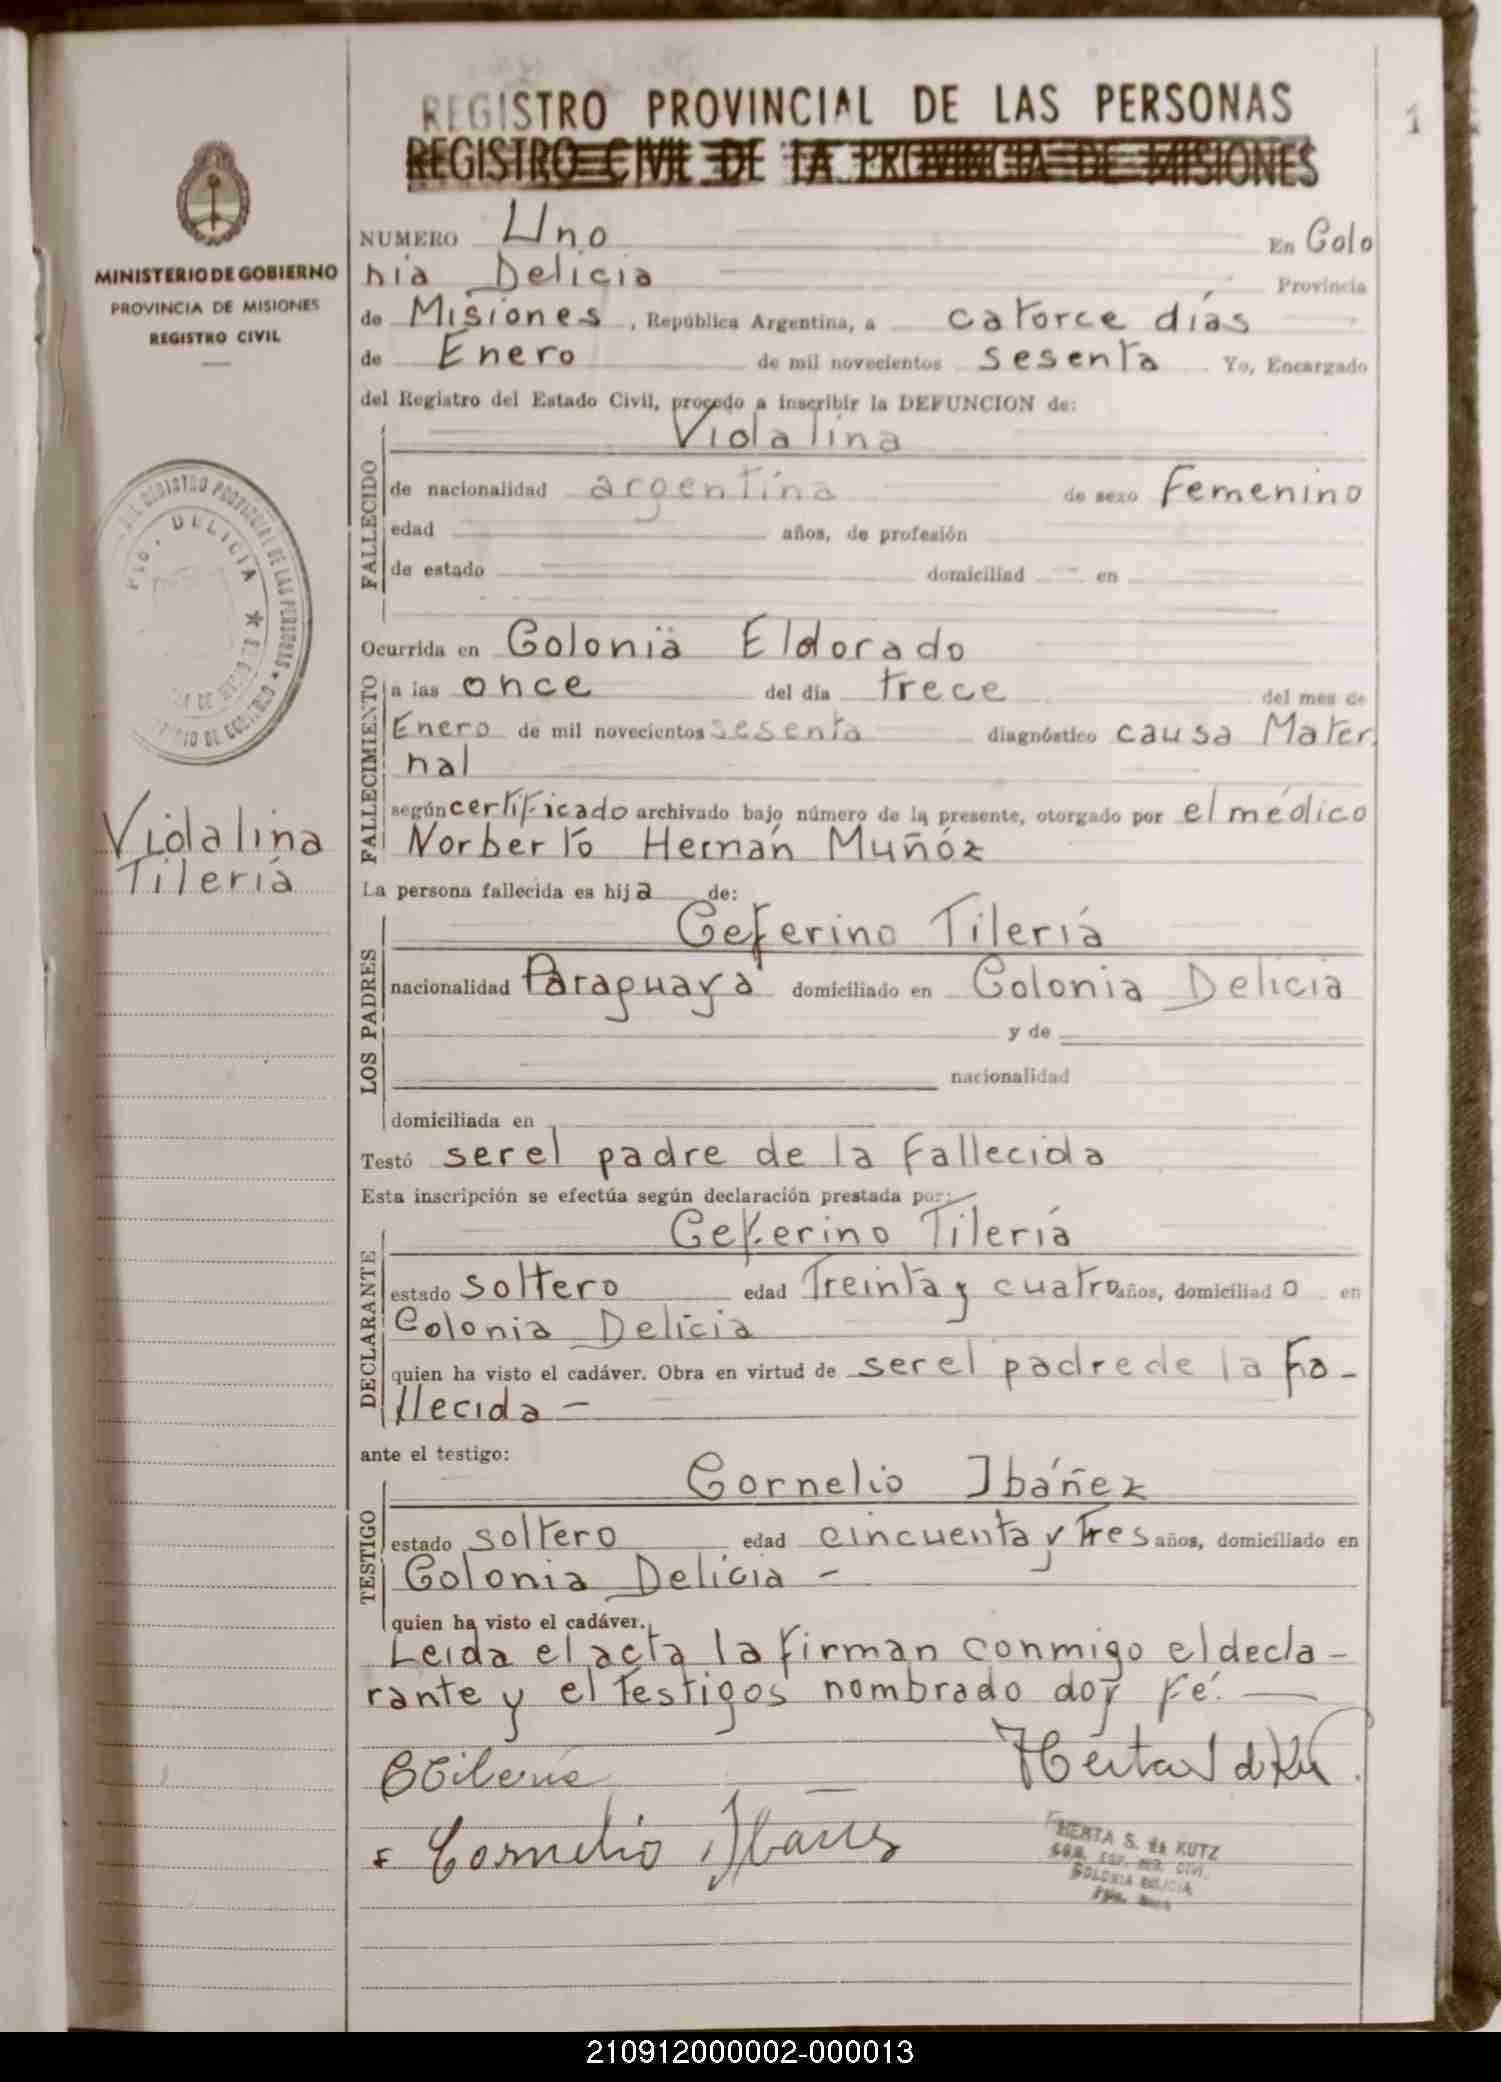 REGISTRO PROVINCIAL DE LAS PERSONAS
REGISTRO CIVIL DE LA PROVINCIA DE MISIONES
1
MINISTERIO DE GOBIERNO
PROVINCIA DE MISIONES
REGISTRO CIVIL
DELICIA
Violalina
Tilería
NUMERO Uno En Colo
nia Delicia Provincia
de Misiones, República Argentina, a catorce días
de Enero de mil novecientos sesenta Yo, Encargado
del Registro del Estado Civil, procedo a inscribir la DEFUNCION de:
Violalina
FALLECIDO
de nacionalidad argentina de sexo Femenino
edad años, de profesión
de estado domiciliad en
Ocurrida en Colonia Eldorado
FALLECIMIENTO
a las once del día trece del mes de
Enero de mil novecientos sesenta diagnóstico causa Mater
nal
según certificado archivado bajo número de la presente, otorgado por el médico
Norberto Hernán Muñóz
La persona fallecida es hija de:
Ceferino Tilería
LOS PADRES
nacionalidad Paraguaya domiciliado en Colonia Delicia
y de
nacionalidad
domiciliada en
Testó ser el padre de la fallecida
Esta inscripción se efectúa según declaración prestada por:
Ceferino Tilería
DECLARANTE
estado soltero edad Treinta y cuatro años, domiciliado en
Colonia Delicia
quien ha visto el cadáver. Obra en virtud de ser el padre de la fa-
llecida -
ante el testigo:
Cornelio Ibáñez
TESTIGO
estado soltero edad cincuenta y tres años, domiciliado en
Colonia Delicia -
quien ha visto el cadáver.
Leida el acta la firman conmigo el decla-
rante y el testigos nombrado doy fé.
CTileria
Cornelio Ibañes
HERTA S. de KUTZ
COLONIA DELICIA
210912000002-000013